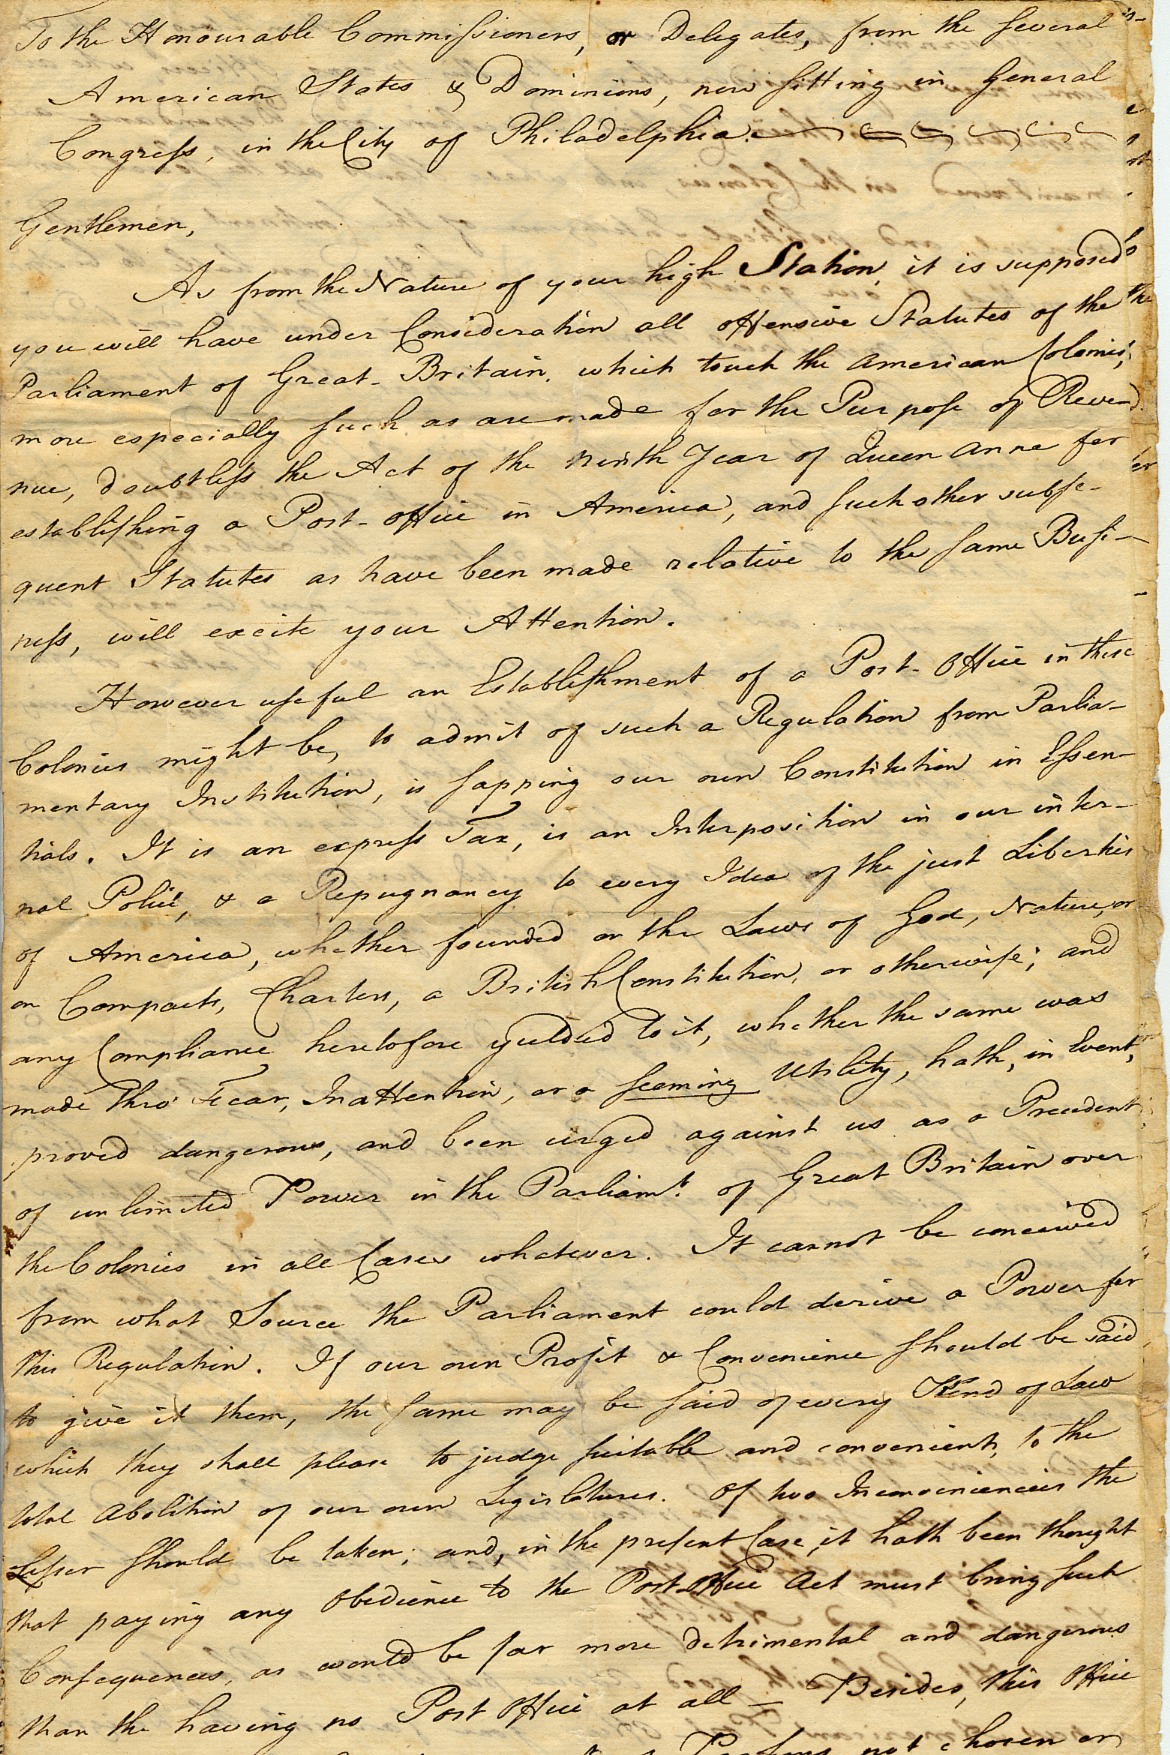 To the Honourable Commissioners, or Delegates, from the several
American States & Dominions, now sitting in General
Congress, in the City of Philadelphia.
Gentlemen,
As from the Nature of your high Station, it is supposed
you will have under Consideration all offensive Statutes of the
Parliament of Great-Britain, which touch the American Colonies,
more especially such as are made for the Purpose of Reve-
nue, doubtless the Act of the ninth Year of Queen Anne for
establishing a Post-office in America, and such other subse-
quent Statutes as have been made relative to the same Busi-
ness, will excite your Attention.
However useful an Establishment of a Post-Office in these
Colonies might be, to admit of such a Regulation from Parlia-
mentary Institution, is sapping our own Constitution in Essen-
tials. It is an express Tax, is an Interposition in our inter-
nal Police, & a Repugnancy to every Idea of the just Liberties
of America, whether founded on the Laws of God, Nature, or
on Compacts, Charters, a British Constitution, or otherwise; and
any Compliance heretofore yielded to it, whether the same was
made thro' Fear, Inattention, or a seeming Utility, hath, in Event,
proved dangerous, and been urged against us as a Precedent
of unlimited Power in the Parliamt. of Great Britain over
the Colonies in all Cases whatever. It cannot be conceived
from what Source the Parliament could derive a Power for
this Regulation. If our own Profit & Convenience should be said
to give it them, the same may be said of every Kind of Law
which they shall please to judge suitable and convenient, to the
total Abolition of our own Legislatures. Of two Inconveniencies the
Lesser should be taken; and, in the present Case, it hath been thought
that paying any Obedience to the Post-Office Act must bring such
Consequences, as would be far more detrimental and dangerous
than the having no Post Office at all — Besides, this Office
Persons not chosen or